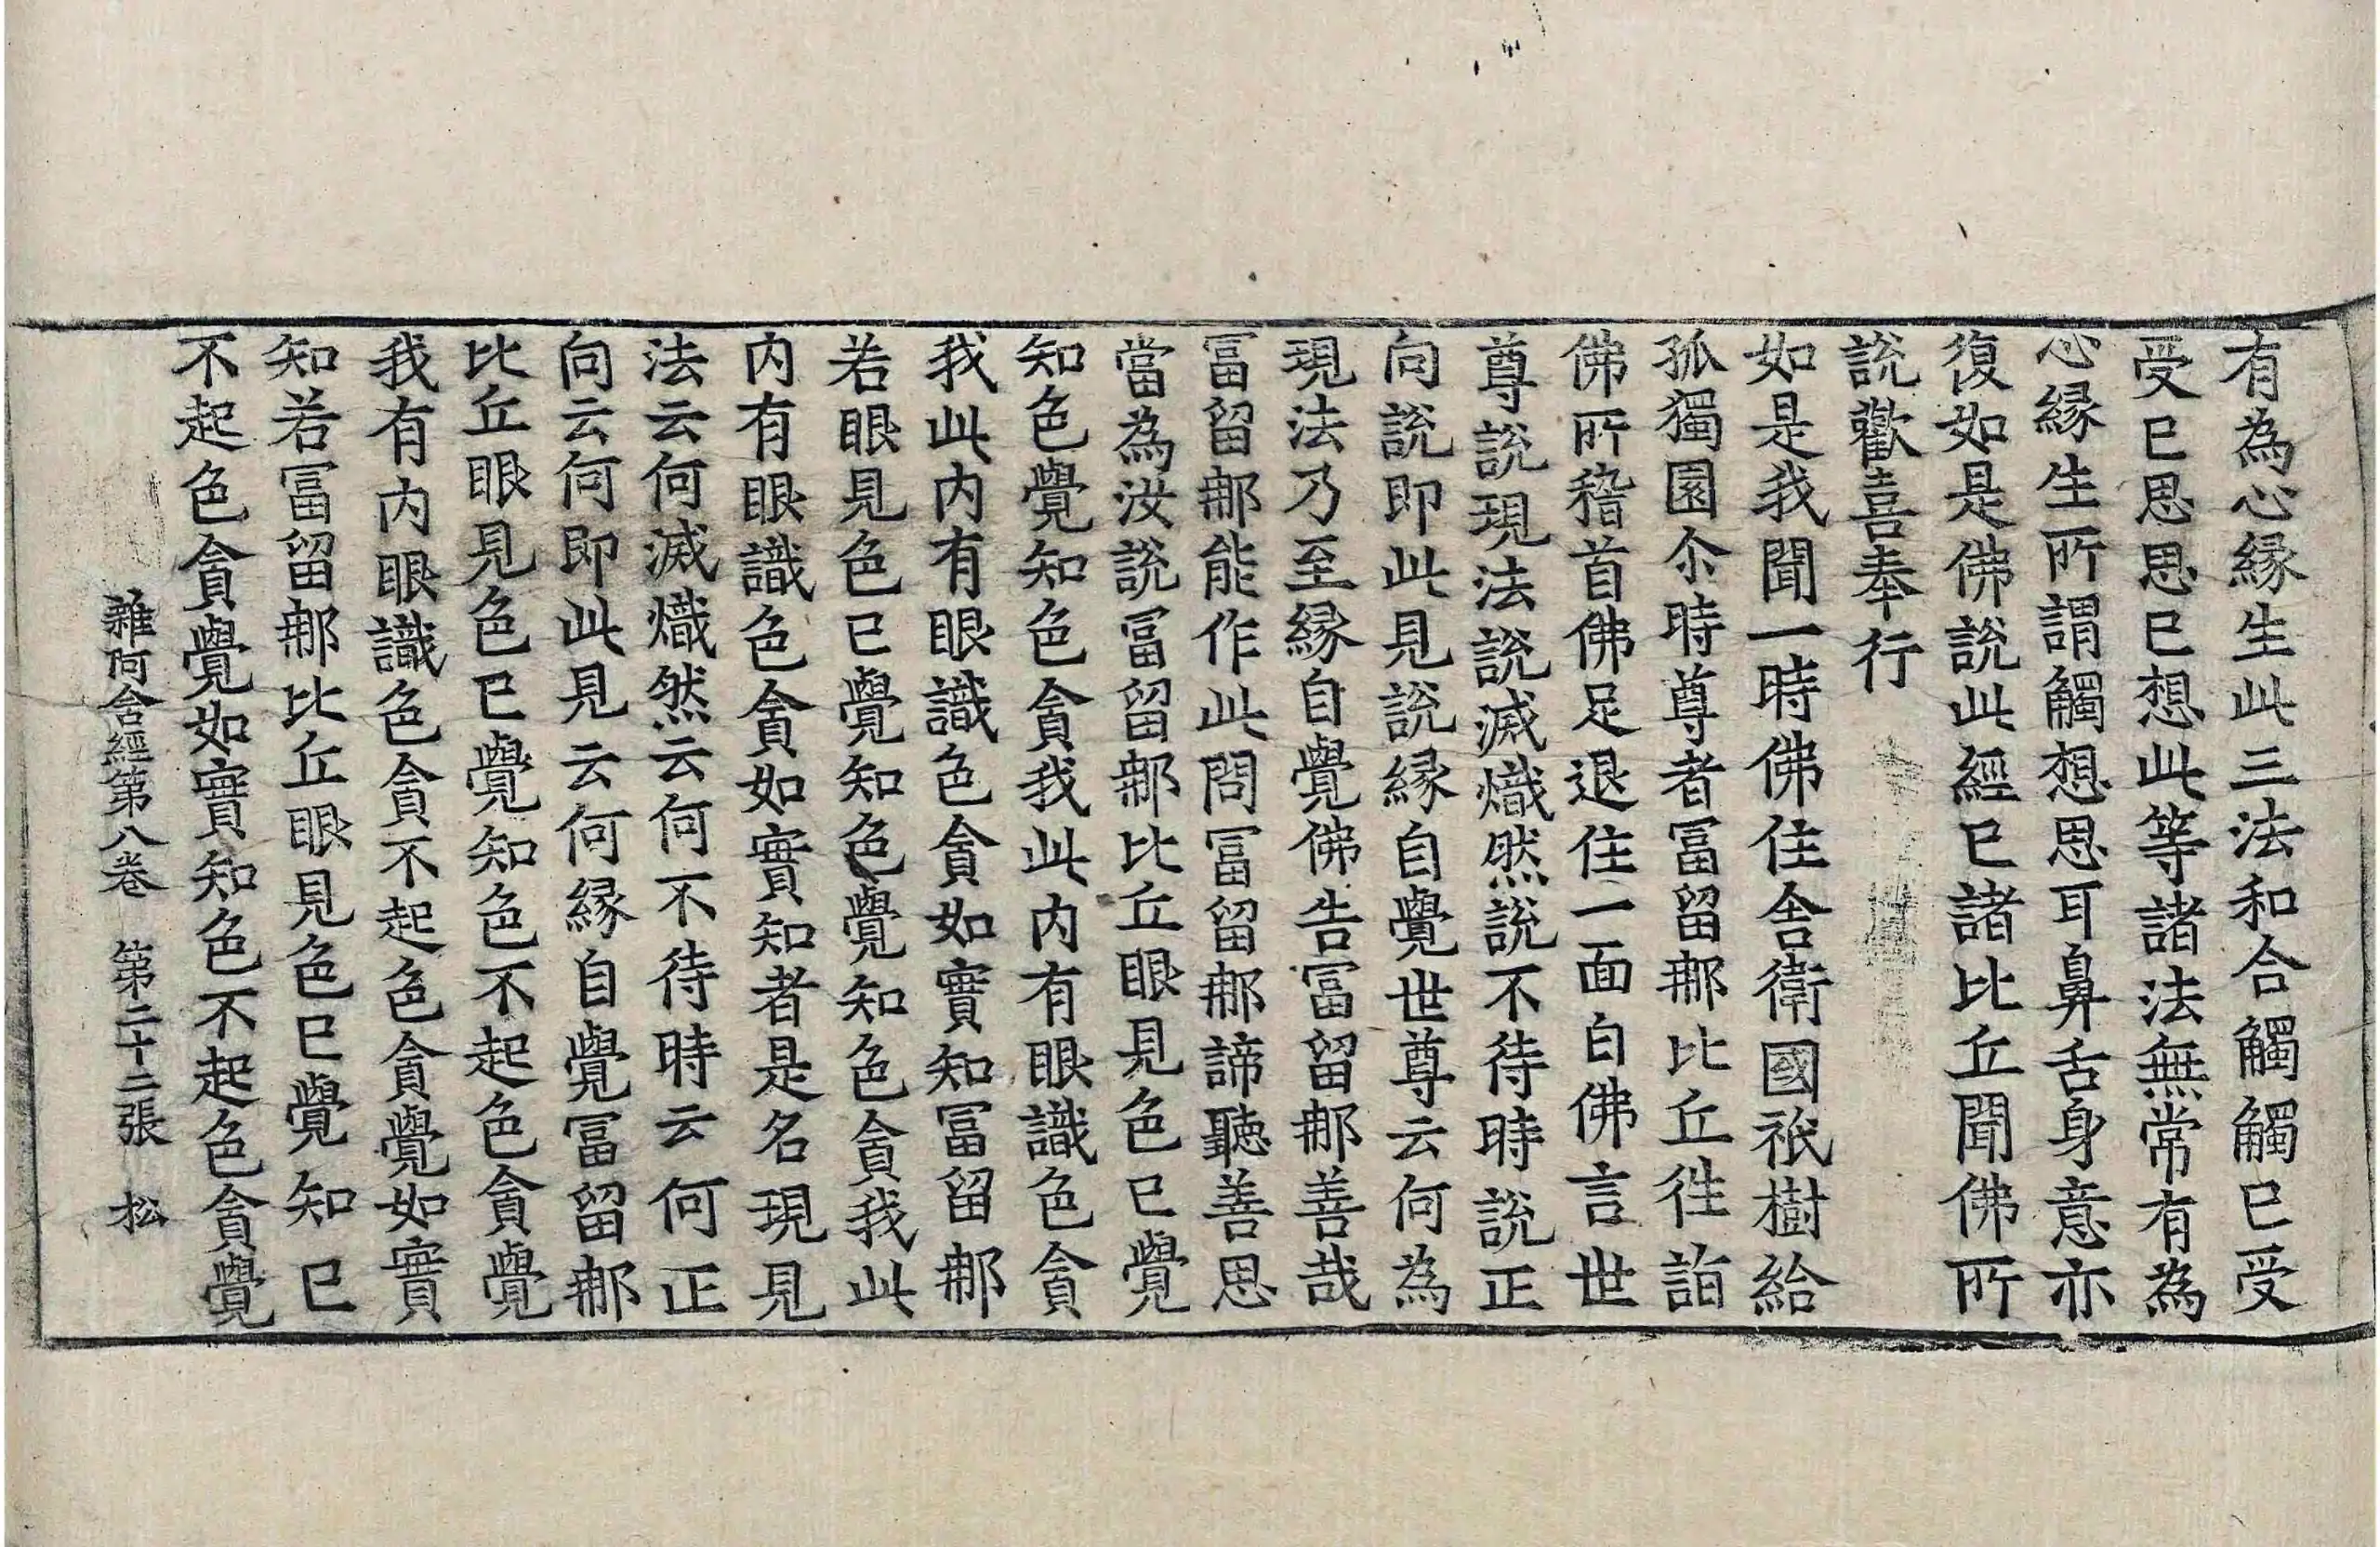 有為心縁生此三法和合觸觸已受
受已思思已想此等諸法無常有為
心縁生所謂觸想思耳鼻舌身意亦
復如是佛說此經已諸比丘聞佛所
說歡喜奉行
如是我聞一時佛住舎衛國祇樹給
孤獨園尒時尊者冨留𨚗比丘徃詣
佛所稽首佛足退住一面白佛言世
尊說現法說滅熾然說不待時說正
向說即此見說縁自覺世尊云何為
現法乃至縁自覺佛告冨留𨚗善哉
冨留𨚗能作此問冨留𨚗諦聽善思
當為汝說冨留𨚗比丘眼見色已覺
知色覺知色貪我此内有眼識色貪
我此内有眼識色貪如實知冨留𨚗
若眼見色已覺知色覺知色貪我此
内有眼識色貪如實知者是名現見
法云何滅熾然云何不待時云何正
向云何即此見云何縁自覺冨留𨚗
比丘眼見色已覺知色不起色貪覺
我有内眼識色貪不起色貪覺如實
知若冨留𨚗比丘眼見色已覺知已
不起色貪覺如實知色不起色貪覺
雜阿含經第八卷　第二十二張　松